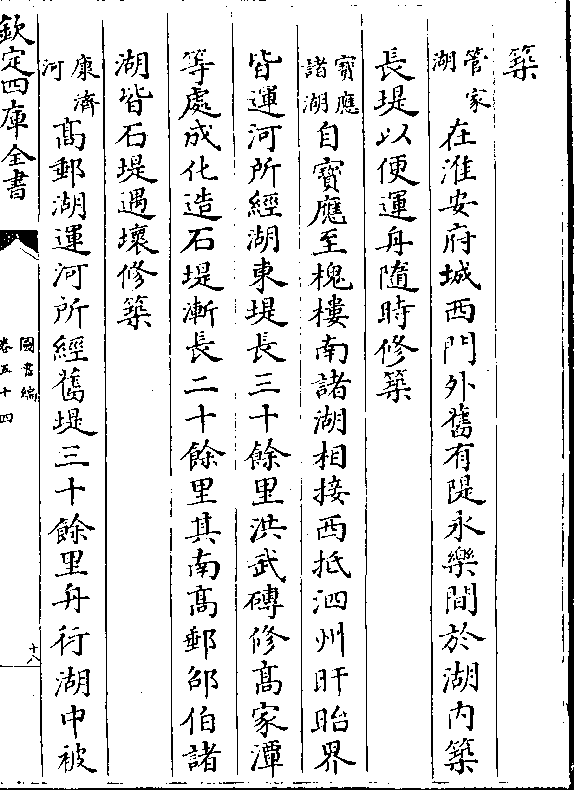 築
管家湖 在淮安府城西門外舊有隄永樂間於湖内築
長堤以便運舟隨時修築
寳應諸湖 自寳應至槐樓南諸湖相接西抵泗州盱眙界
皆運河所經湖東堤長三十餘里洪武磚修髙家潭
等處成化造石堤漸長二十餘里其南髙郵邵伯諸
湖皆石堤遇壞修築
康濟河 髙郵湖運河所經舊堤三十餘里舟行湖中被
欽定四庫全書
圖書編
卷五十四
十八